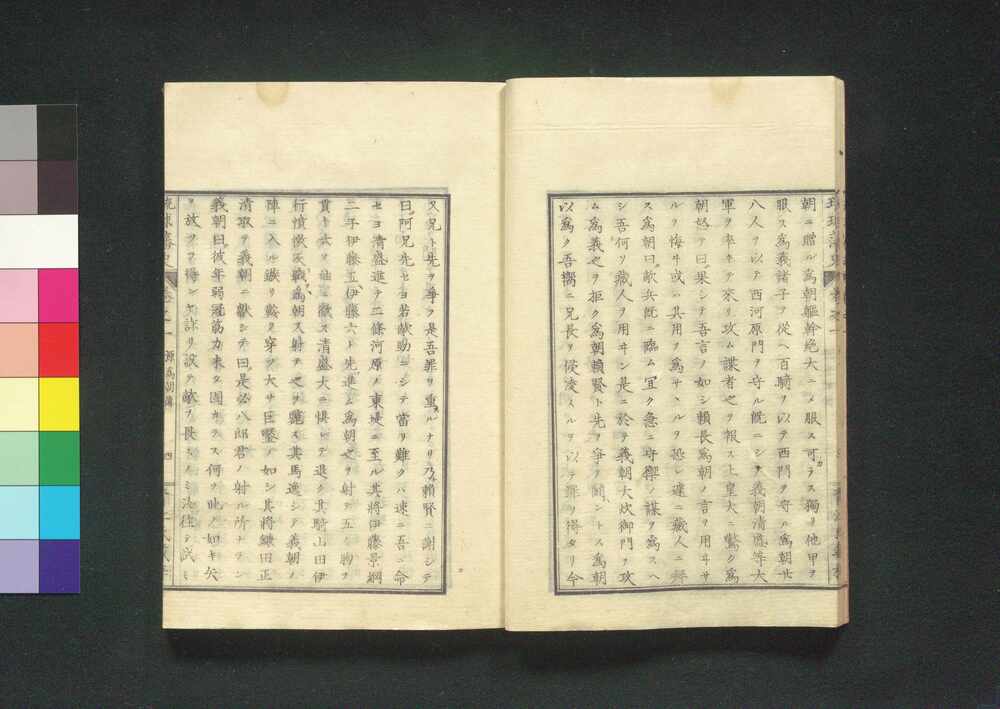 朝ニ贈ル為朝軀幹絶大ニメ服ス可ラス獨リ他甲ヲ
服ス為義諸子ヲ從ヘ百騎ヲ以テ西門ヲ守ル為朝廿
八人ヲ以テ西河原門ヲ守ル既ニシテ義朝清盛等大
軍ヲ率ヰテ來リ攻ム諜者之ヲ報ス上皇大ニ驚ク為
朝怒テ曰果シテ吾言ノ如シ賴長為朝ノ言ヲ用ヰサ
ルヲ悔ヰ或ハ其用ヲ為サヽルヲ恐レ遽ニ藏人ニ
ス為朝曰敵兵既ニ臨ム宜ク急ニ守禦ノ謀ヲ為スヘ
シ吾何ソ藏人ヲ用ヰン是ニ於テ義朝大炊御門ヲ攻
ム為義之ヲ拒ク為朝賴賢ト先ヲ爭ヒ鬪ントス為朝
以為ク吾嚮ニ兄長ヲ侵凌スルヲ以テ罪ヲ得タリ今
又兄ト先ヲ爭フ是吾罪ヲ重ヌルナリ乃賴賢ニ謝シテ
曰阿兄先セヨ若敵勍ニシテ當リ難クハ速ニ吾ニ命
セヨ清盛進テ二條河原ノ東堤ニ至ル其將伊藤景綱
二子伊藤五伊藤六ト先進ム為朝之ヲ射テ五ノ胸ヲ
貫キ六ノ袖ニ徹ス清盛大ニ惧レテ退ク其騎山田伊
行憤激反戰為朝又射テ之ヲ斃ス其馬逸シテ義朝ノ
陣ニ入ル鏃リ鞍ヲ穿ツ大サ巨鑿ノ如シ其將鎌田正
清取テ義朝ニ獻シテ曰是必八郎君ノ射ル所ナラン
義朝曰彼年弱冠筋力未タ固カラス何ソ此ノ如キ矢
ヲ放ツヲ得ンヤ詐リ設テ敵ヲ畏ミ汝往テ試ミ
源為朝傳
四